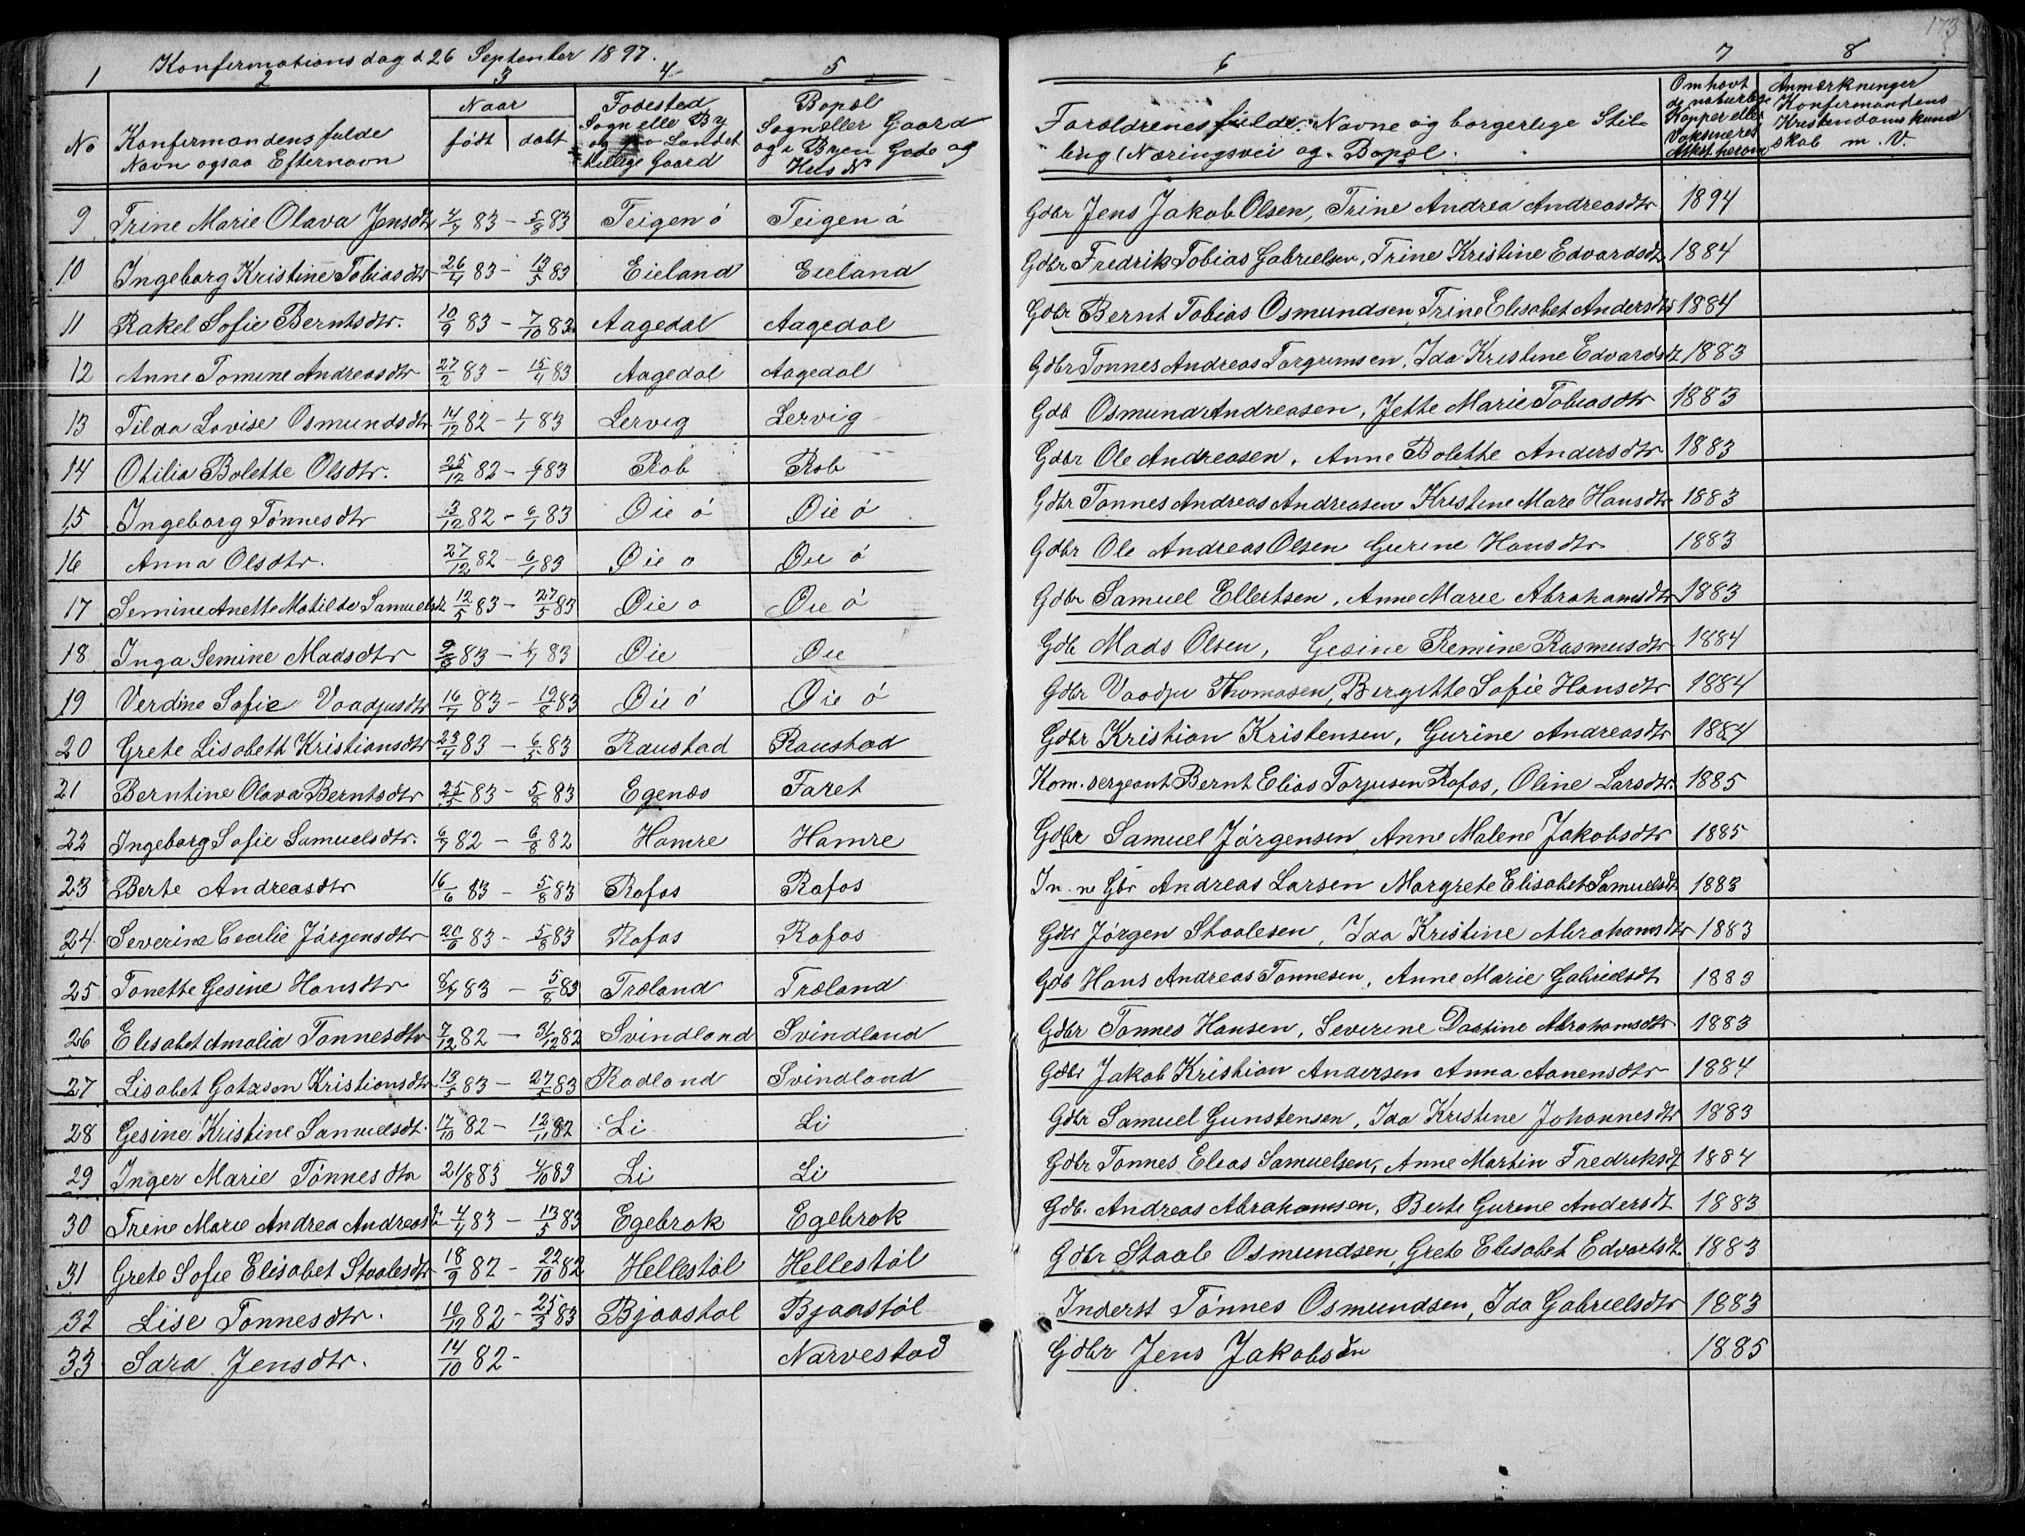 173
Konfirmationsdag d 26 September 1897.
1 2 3 4 5 6 7 8
No Konfirmandens fulde Navn ogsaa Efternavn
Naar født døbt
Fødested Sogn elle By og paa Landet tillige Gaard
Bopæl Sogn eller Gaard og i Byen Gade og Hus No
Forældrenes fulde Navne og borgerlige Stilling (Næringsvei og Bopæl.
Omhavt de naturlige Kopper eller Vaksineret Attest herom
Anmærkninger Konfirmandens Kristendomskundskab m. V.
9 Trine Marie Olava Jensdtr 4/7 83 - 5/8 83 Teigen ö Teigen ö Gdbr Jens Jakob Olsen, Trine Andrea Andreasdtr 1894
10 Ingeborg Kristine Tobiasdtr 26/4 83 - 13/5 83 Eieland Eieland Gdbr Fredrik Tobias Gabrielsen, Trine Kristine Edvardsdt 1884
11 Rakel Sofie Berntsdtr. 10/9 83 - 7/10 83 Aagedal Aagedal Gdbr Bernt Tobias Osmundsen, Trine Elisabet Andersdtr 1884
12 Anne Tomine Andreasdtr 27/2 83 - 15/4 83 Aagedal Aagedal Gdbr Tønnes Andreas Torgrimsen, Ida Kristine Edvardsdt 1883
13 Tilda Lovise Osmundsdtr 14/12 82 - 1/1 83 Lervig Lervig Gdb Osmund Andreasen, Jette Marie Tobiasdtr 1883
14 Otilia Bolette Olsdtr. 25/12 82 - 83 Rob Rob Gdbr Ole Andreasen, Anne Bolette Andersdtr 1883
15 Ingeborg Tønnesdtr 3/12 82 - 6/1 83 Øie ö Øie ö Gdbr Tønnes Andreas Andreasen Kristine Mare Hansdtr 1883
16 Anna Olsdtr. 27/12 82 - 6/1 83 Øie ö Øie ö Gdbr Ole Andreas Olsen Gurine Hansdtr 1883
17 Semine Anette Matilde Samuelsdt 12/5 83 - 27/5 83 Øie ö Øie ö Gdbr Samuel Ellertsen, Anne Marie Abrahamsdtr 1883
18 Inga Semine Madsdtr 83 - 83 Øie Øie Gdb Mads Olsen, Gesine Remine Rasmusdtr 1884
19 Verdine Sofie Vaadjusdtr 16/7 83 - 19/8 83 Øie ö Øie ö Gdbr Vaadju Thomasen, Bergitte Sofie Hansdtr 1884
20 Grete Lisabeth Kristiansdtr 23/4 83 - 6/5 83 Raustad Raustad Gdbr Kristian Kristensen, Gurine Andreasdtr 1884
21 Berntine Olava Berntsdtr 25/5 83 - 5/8 83 Egenæs Faret Kom. sergeant Bernt Elias Torjusen Rafos, Oline Larsdtr. 1885
22 Ingeborg Sofie Samuelsdtr. 6/7 82 - 6/8 82 Hamre Hamre Gdbr Samuel Jörgensen, Anne Malene Jakobsdtr 1885
23 Berte Andreasdtr 16/6 83 - 5/8 83 Rafos Rafos In. n Gbr Andreas Larsen Margrete Elisabet Samuelsdt 1883
24 Severine Cecilie Jörgensdtr 20/6 83 - 5/8 83 Rafos Rafos Gdbr Jörgen Staalesen, Ida Kristine Abrahamsdtr 1883
25 Tonette Gesine Hansdtr 6/7 83 - 5/8 83 Træland Træland Gdb Hans Andreas Tønnesen, Anne Marie Gabrielsdt 1883
26 Elisabet Amalia Tønnesdtr 7/12 82 - 31/12 82 Svindland Svindland Gdbr Tønnes Hansen, Severine Dortine Abrahamsdtr 1883
27 Lisabet Gotzson Kristiansdtr 13/5 83 - 27/5 83 Rødland Svindland Gdbr Jakob Kristian Andersen Anna Aanensdtr 1884
28 Gesine Kristine Samuelsdt. 17/10 82 - 12/11 82 Li Li Gdbr Samuel Gunstensen, Ida Kristine Johannesdtr 1883
29 Inger Marie Tønnesdtr 21/8 83 4/10 83 Li Li Gdbr Tønnes Elias Samuelsen, Anne Martin Fredriksdt 1884
30 Trine Marie Andrea Andreasdtr 4/4 83 - 13/5 83 Egebrok Egebrok Gdb. Andreas Abrahamsen, Berte Gurine Andersdt 1883
31 Grete Sofie Elisabet Staalesdtr 18/9 82 - 22/10 82 Hellestøl Hellestøl Gdbr Staale Osmundsen, Grete Elisabet Edvartsdt. 1883
32 Lise Tønnesdtr. 10/12 82 - 25/3 83 Bjaastøl Bjaastøl Inderst Tønnes Osmundsen, Ida Gabrielsdtr 1883
33 Sara Jensdtr. 14/10 82 - Narvestad Gdbr Jens Jakobsen 1885